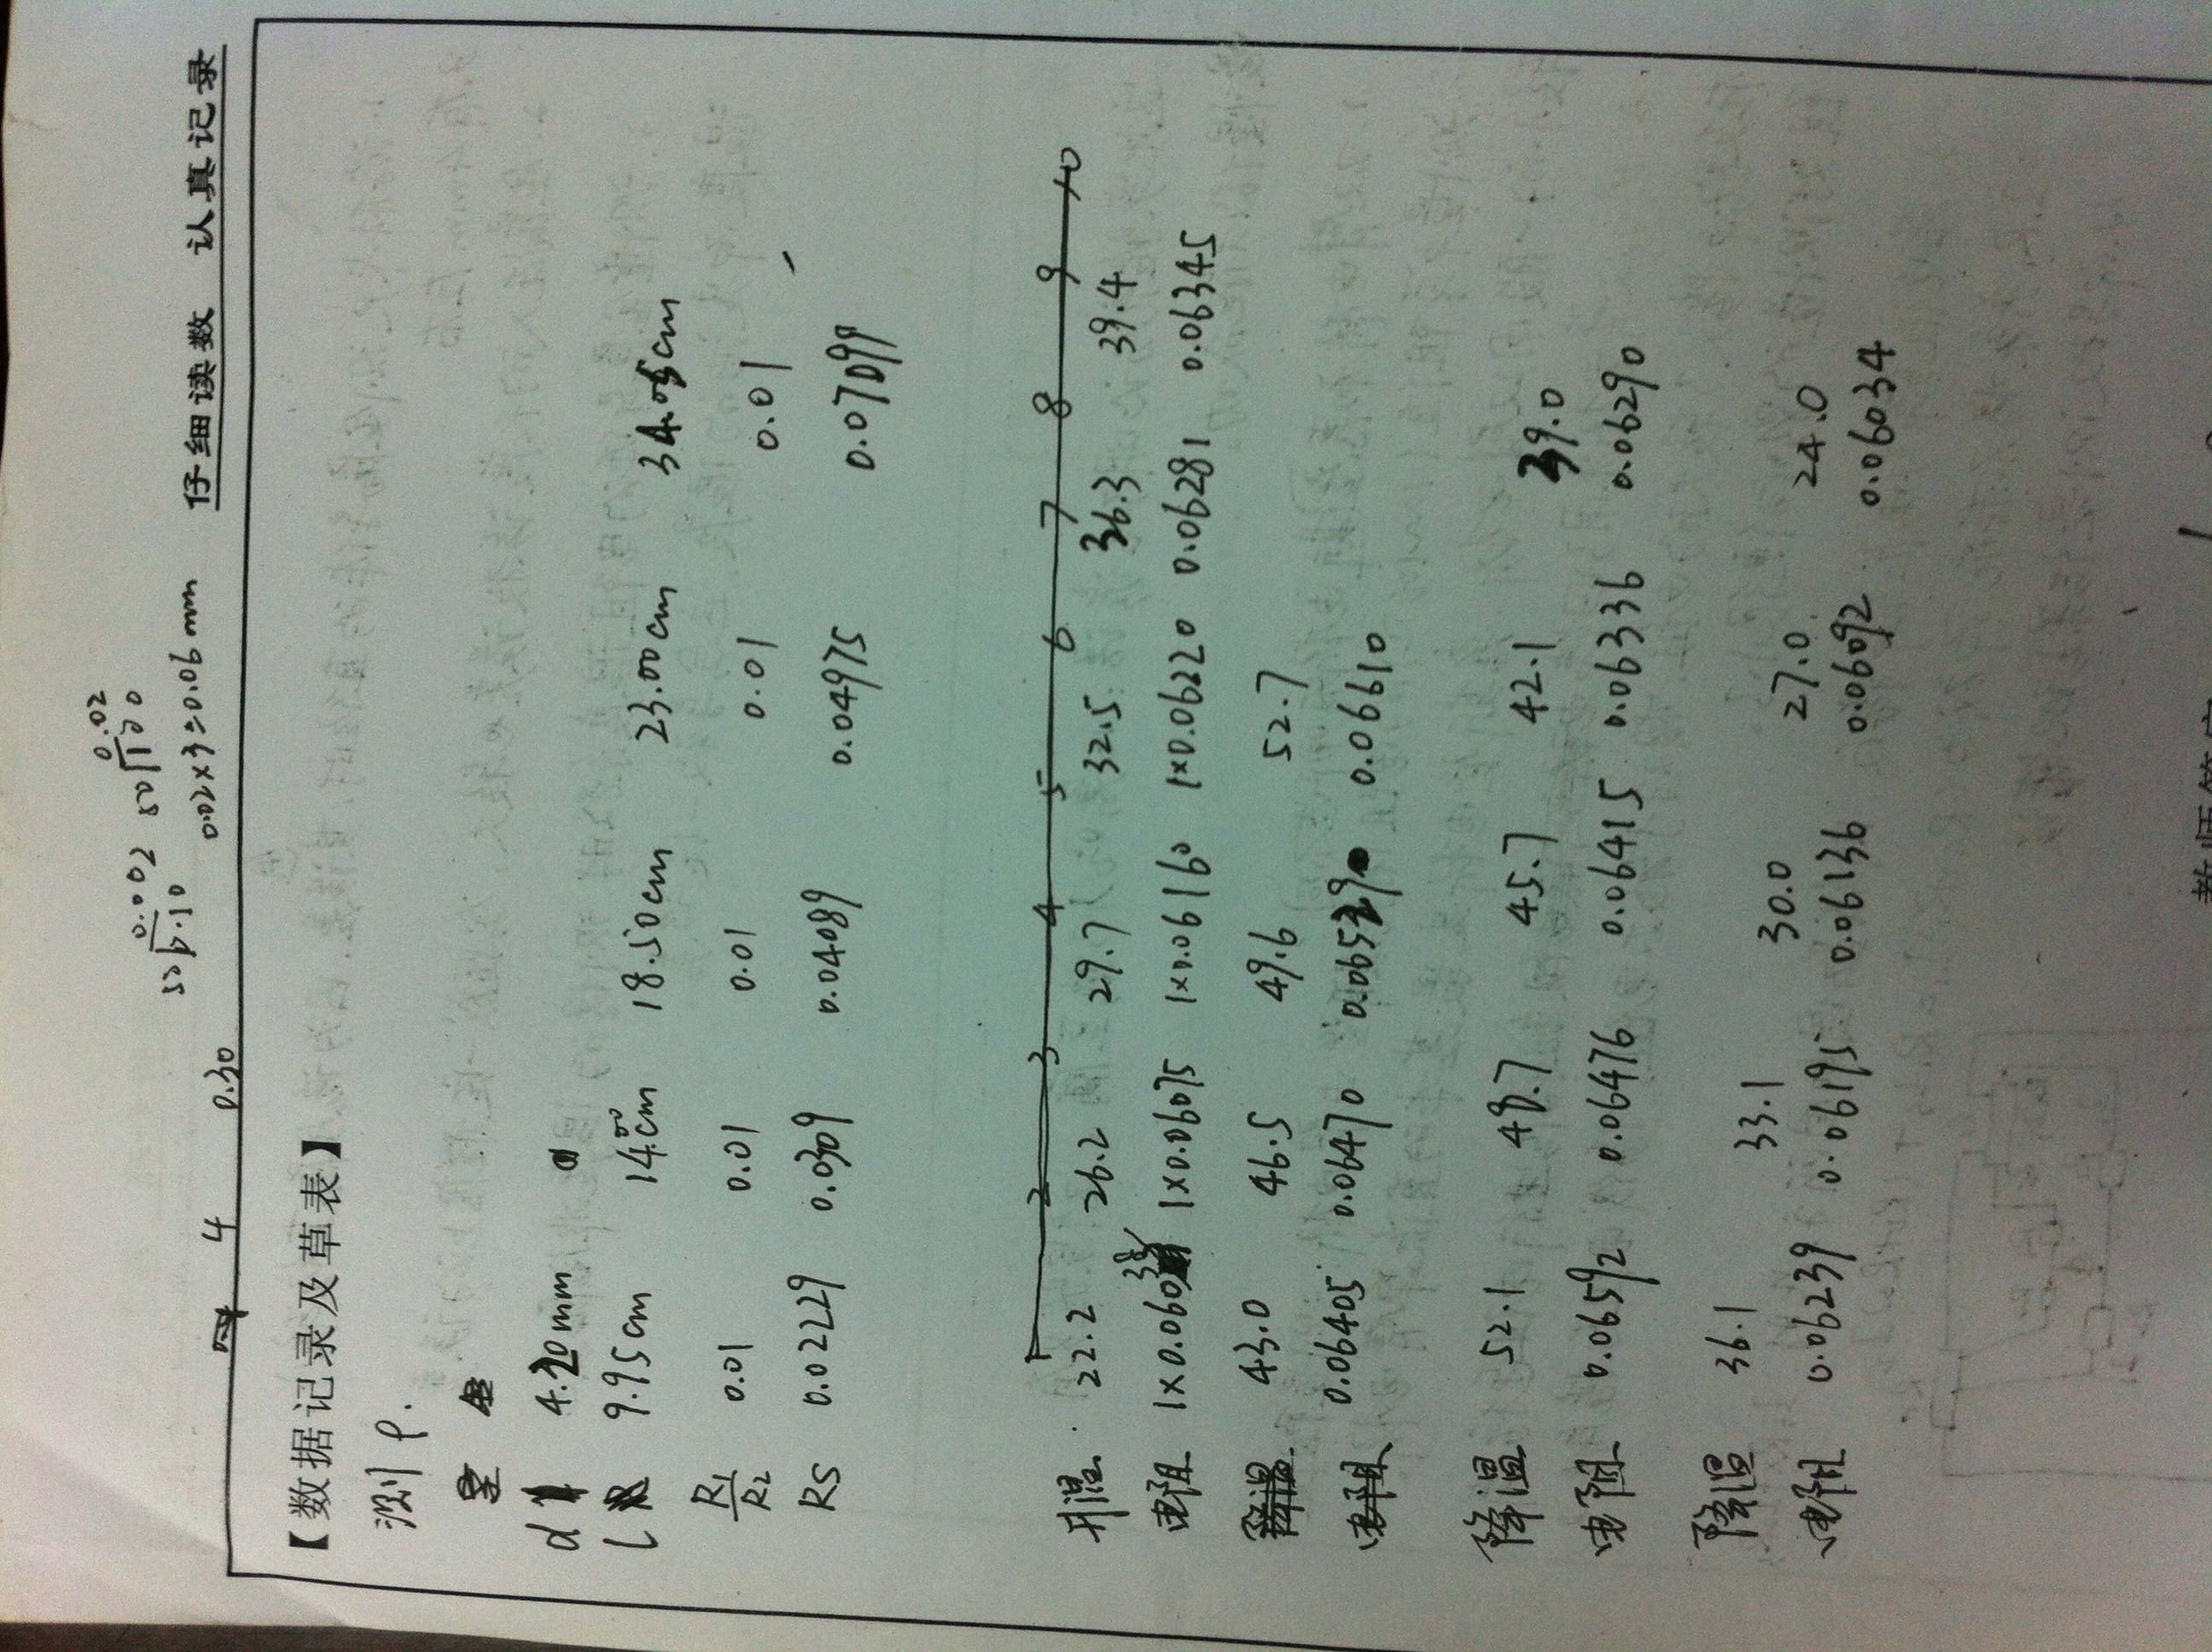 0.002 0.02
50 0.10 50 100
0.02×3=0.06mm 仔细读数 认真记录
4 0.30
【数据记录及草表】
测ρ.
d 4.20mm
l 9.95cm 14.00cm 18.50cm 23.00cm 34.05cm
R1/R2 0.01 0.01 0.01 0.01 0.01
RS 0.02229 0.0309 0.04089 0.04975 0.07099
1 2 3 4 5 6 7 8 9 10
升温 22.2 26.2 29.7 32.5 36.3 39.4
电阻 1×0.06038 1×0.06075 1×0.06160 1×0.06220 0.06281 0.06345
降温 43.0 46.5 49.6 52.7
电阻 0.06405 0.06470 0.06529 0.06610
降温 52.1 48.7 45.7 42.1 39.0
电阻 0.06592 0.06476 0.06415 0.06336 0.06290
降温 36.1 33.1 30.0 27.0 24.0
电阻 0.06239 0.06195 0.06136 0.06092 0.06034